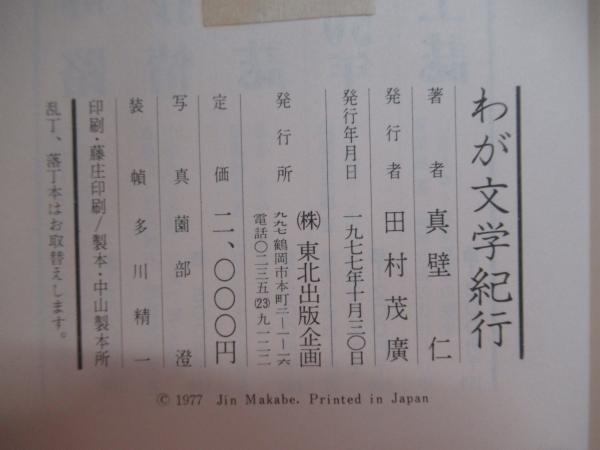 わが文学紀行
著者 真壁 仁
発行者 田村茂廣
発行年月日 一九七七年十月三〇日
発行所 ㈱東北出版企画
九九七 鶴岡市本町二―一―一六
電話〇二三五(23)九一二二
定価 二、〇〇〇円
写真 薗部 澄
装幀 多川精一
印刷・藤庄印刷/製本・中山製本所
乱丁、落丁本はお取替えします。
© 1977 Jin Makabe. Printed in Japan